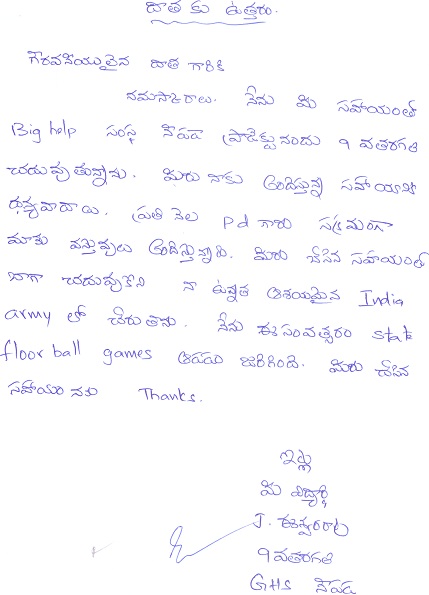 దాత కు ఉత్తరం.
గౌరవనీయులైన దాత గారికి
నమస్కారాలు. నేను మీ సహాయంతో
Big help సంస్థ నౌపడ ప్రాజెక్టు నందు 9 వతరగతి
చదువుతున్నాను. మీరు నాకు అందిస్తున్న సహాయానికి
ధన్యవాదాలు. ప్రతి నెల Pd గారు సక్రమంగా
మాకు వస్తువులు అందిస్తున్నారు. మీరు చేసిన సహాయంతో
బాగా చదువుకొని నా ఉన్నత ఆశయమైన India
army లో చేరుతాను. నేను ఈ సంవత్సరం state
floor ball games ఆడడం జరిగింది. మీరు చేసిన
సహాయం నకు Thanks.
ఇట్లు
మీ విద్యార్థి
J. ఈశ్వరరావు
9 వతరగతి
GHS నౌపడ